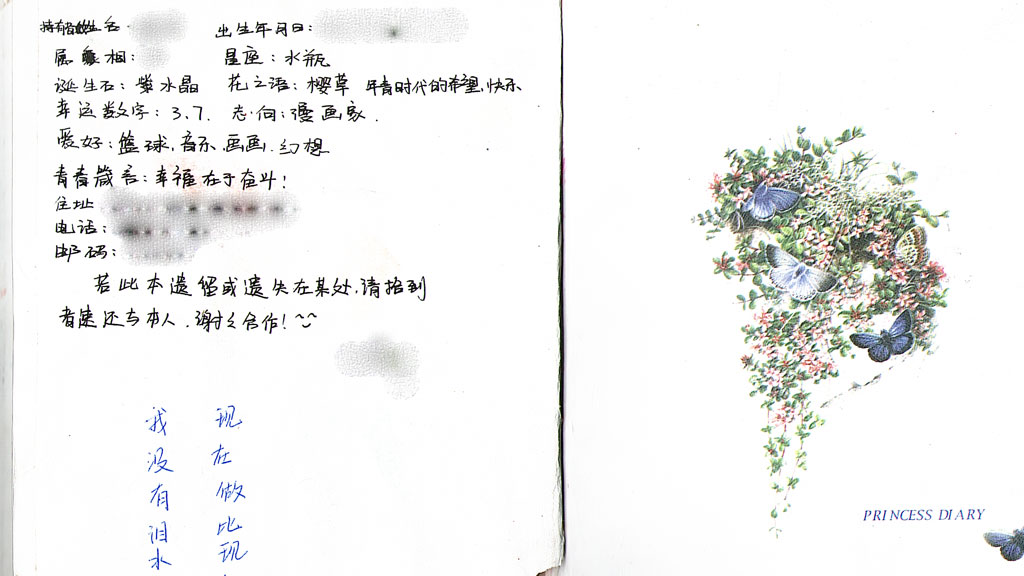 持有者姓名:
出生年月日:
属 相:
星座:水瓶
诞生石:紫水晶
花之语:樱草 年青时代的希望,快乐
幸运数字:3.7.
志向:漫画家.
爱好:篮球,音乐,画画.幻想
青春箴言:幸福在于奋斗!
住址
电话:
邮码:
若此本遗留或遗失在某处,请拾到
者速还与本人.谢谢合作!
我没有泪水
现在做比现
PRINCESS DIARY